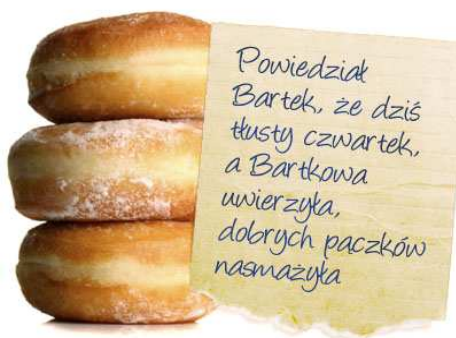 Powiedział
Bartek, że dziś
tłusty czwartek,
a Bartkowa
uwierzyła,
dobrych pączków
nasmażyła